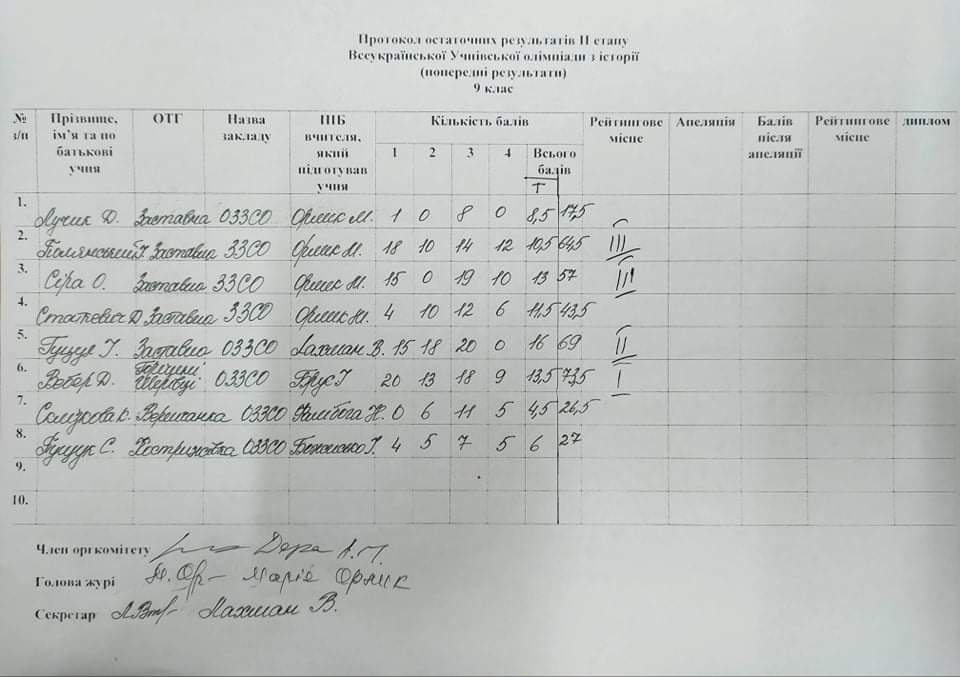 Протокол остаточних результатів II етапу
Всеукраїнської Учнівської олімпіади з історії
(попередні результати)
9 клас
№ з/п Прізвище, ім'я та по батькові учня ОТГ Назва закладу ПІБ вчителя, який підготував учня Кількість балів Рейтингове місце Апеляція Балів після апеляції Рейтингове місце диплом
1 2 3 4 Всього балів
Т
1. Лучик Д. Заставна ОЗЗСО Орлик М. 1 0 8 0 8,5 17,5
2. Заставна ЗЗСО Орлик М. 18 10 14 12 10,5 64,5 III
3. Сіра О. Заставна ЗЗСО Орлик М. 15 0 19 10 13 57 III
4. Статкевич Д. Заставна ЗЗСО Орлик М. 4 10 12 6 11,5 43,5
5. Гуцул І. Заставна ОЗЗСО Лахман В. 15 18 20 0 16 69 II
6. Вебер Д. Горішні Шерівці ОЗЗСО Брус І 20 13 18 9 13,5 73,5 I
7. Веренчанка ОЗЗСО 0 6 11 5 4,5 26,5
8. С. ОЗЗСО 4 5 7 5 6 27
9.
10.
Член оргкомітету Дера А.М.
Голова журі М. Ор- Марія Орлик
Секретар Лахман В.